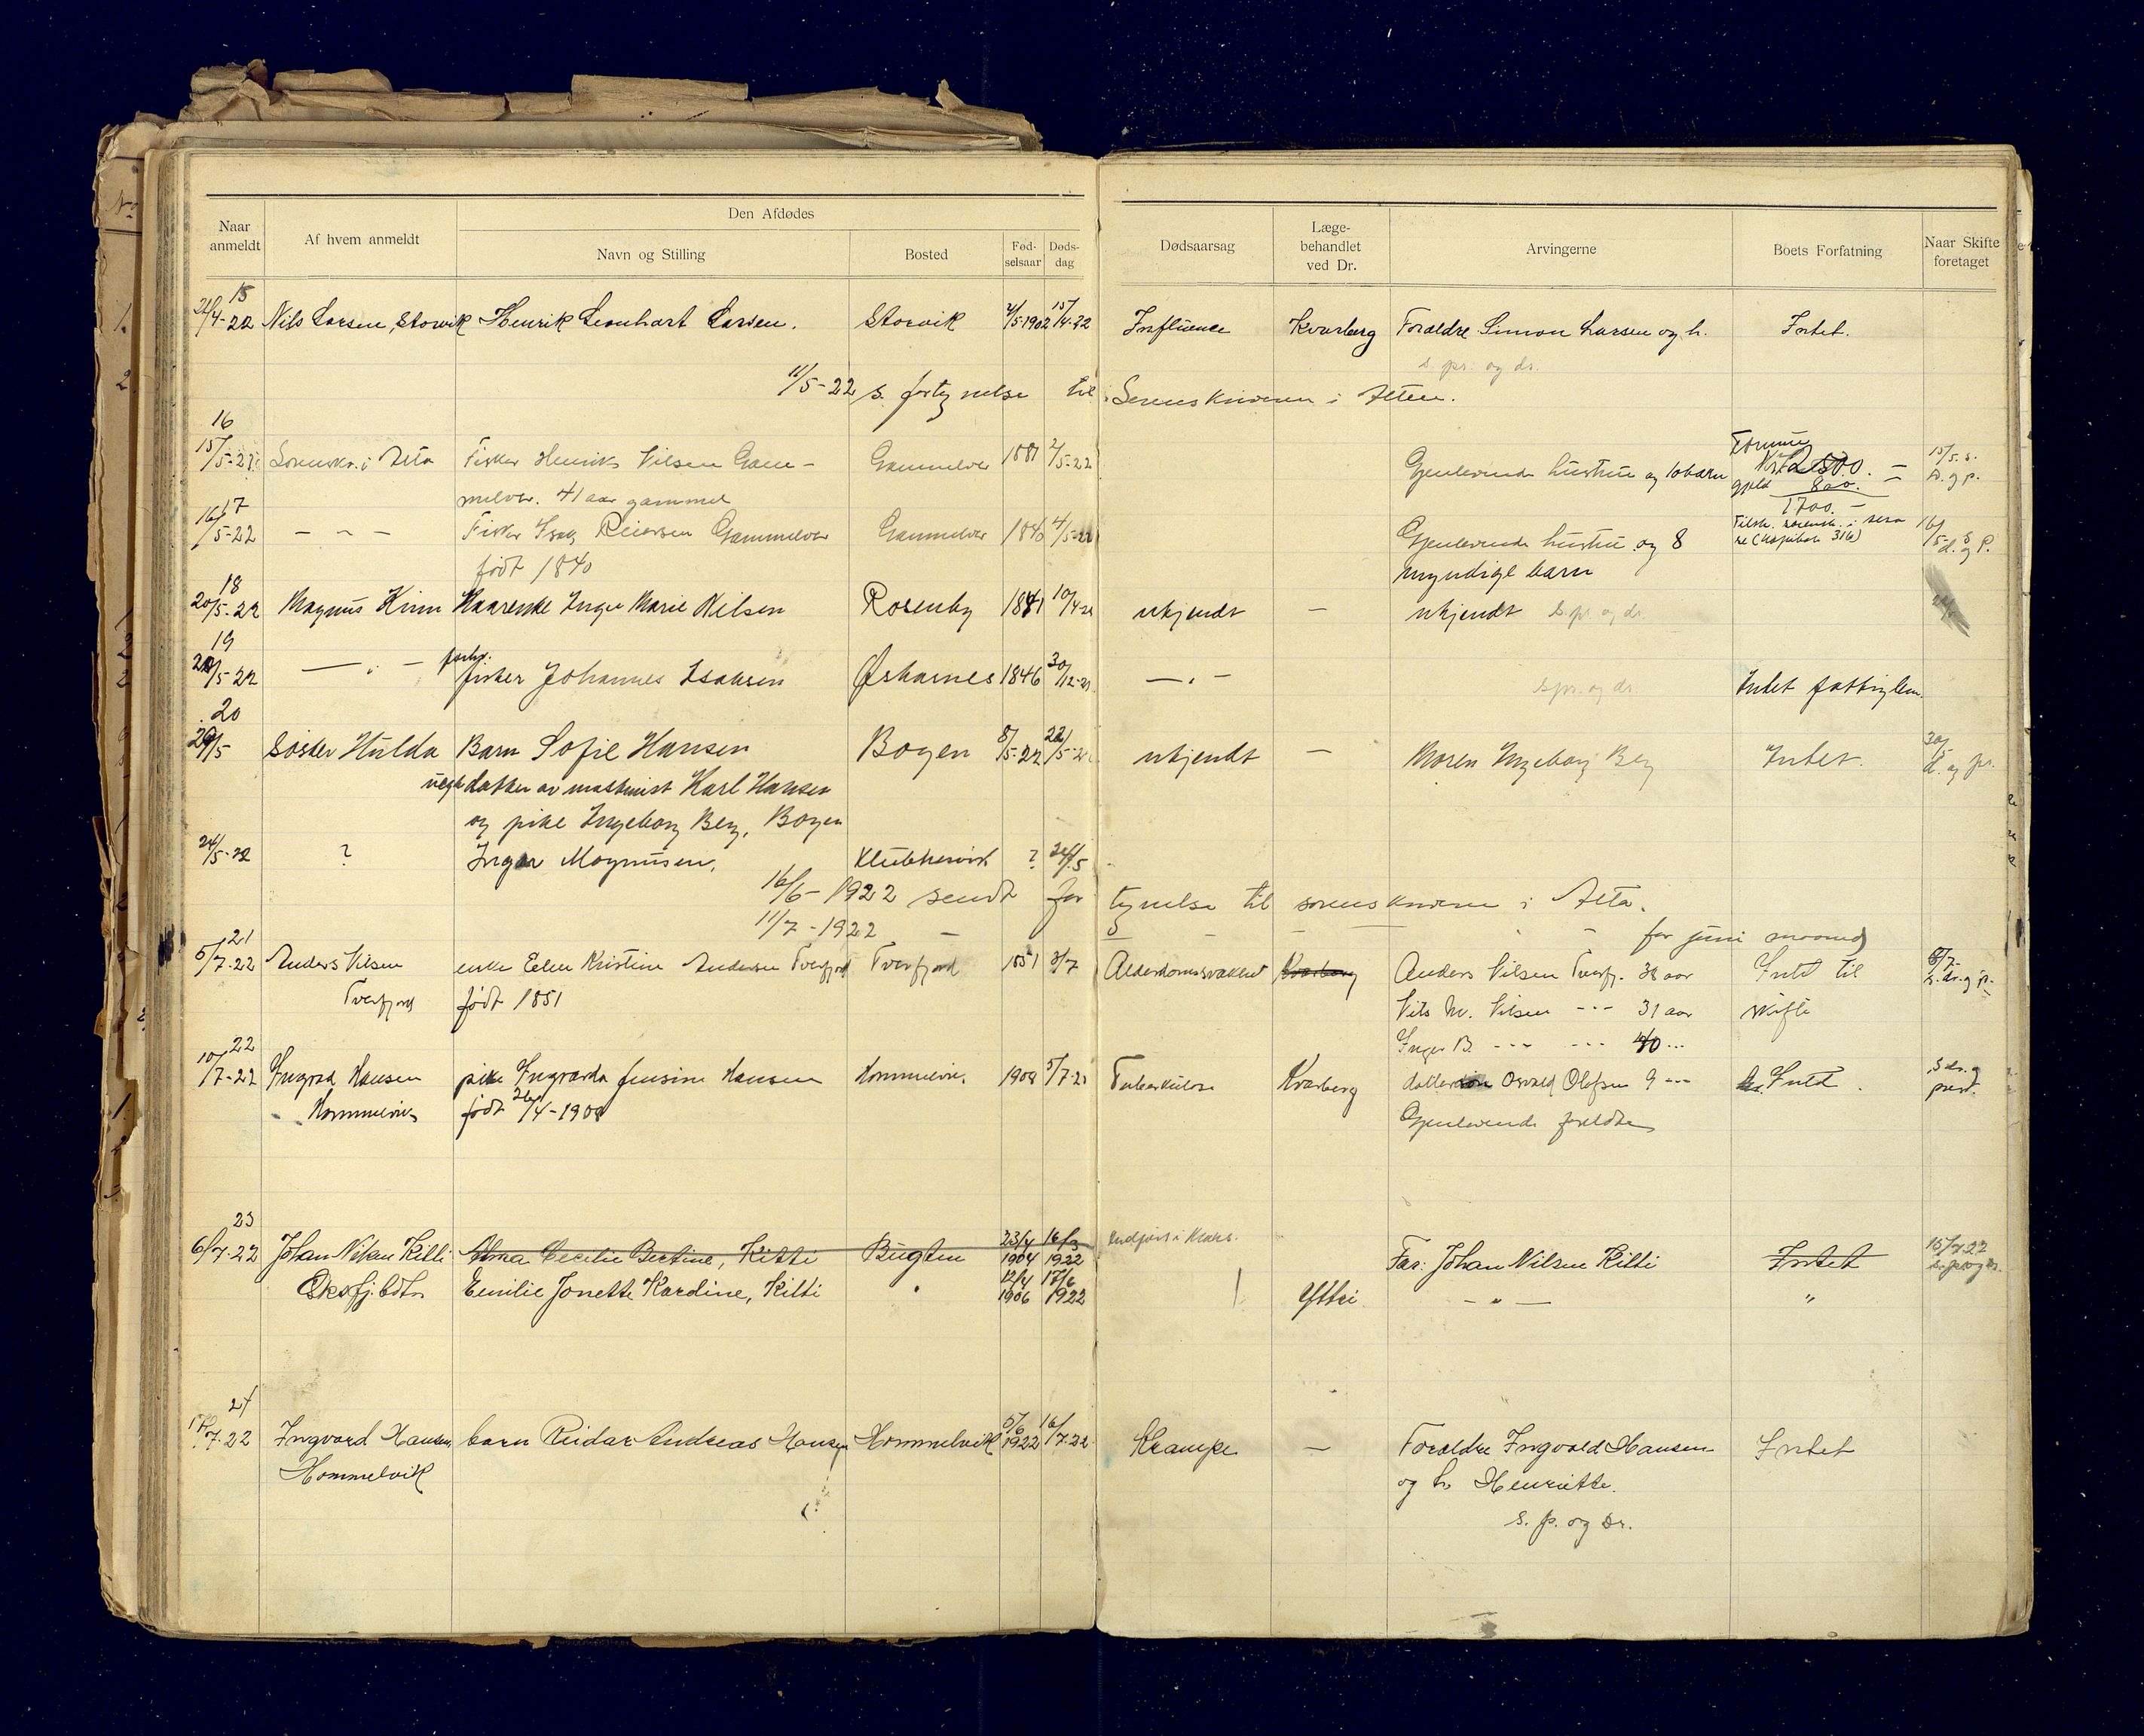 Naar anmeldt
Af hvem anmeldt
Den Afdødes
Navn og Stilling
Bosted
Fød-selsaar
Døds-dag
Dødsaarsag
Læge-behandlet ved Dr.
Arvingerne
Boets Forfatning
Naar Skifte foretaget
15
21/4-22 Nils Larsen, Storvik Henrik Leonhart Larsen. Storvik 2/5-1902 15/4-22 Influence Kvarberg Forældre Simon Larsen og h. Intet.
s. pr. og dr.
11/5-22 s. fortegnelse til Sorenskriveren i Alten.
16
15/5-22 Sorenskr. i Alta Fisker Henrik Nilsen Gam- Gammelvær 1881 2/5-22 Gjenlevende hustru og 10 barn Formue Kr. 2500. - 15/5. s.
melvær. 41 aar gammel gjeld 800. - d. og p.
1700. -
17
16/5-22 - " - Fisker Isak Reiersen Gammelvær Gammelvær 1840 4/5-22 Gjenlevende hustru og 8 16/5 d. og p.
født 1840 myndige barn
18
20/5-22 Magnus Kinn Kaarenke Inger Marie Nilsen Rosenby 1841 10/4-22 ukjendt - ukjendt s. pr. og dr.
19
20/5-22 - " - forhv. fisker Johannes Isaksen Øksharnes 1846 30/12-21 - " - s. pr. og dr. Intet fattiglem.
20
29/5 Søster Hulda Barn Sofie Hansen Bogen 8/5-22 22/5-22 ukjendt - Moren Ingeborg Berg Intet. 30/5 d. og pr.
uegte datter av maskinist Karl Hansen
og pike Ingeborg Berg, Bogen
24/5-22 ? Inger Magnusen, Klubbenvik ? 24/5
16/6-1922 sendt fortegnelse til sorenskriveren i Alta.
11/7-1922 - - - for juni maaned
21
5/7-22 Anders Nilsen enke Ellen Kristine Andersen Tverfjord Tverfjord 1851 3/7 Alderdomssvakhet Kvarberg Anders Nilsen Tverfj. 38 aar Intet til
Tverfjord født 1851 Nils M. Nilsen - - - 31 aar skifte
Inger B. - - - - - - 40 ...
22
10/7-22 Ingvad Hansen pike Ingvarda Jensine Hansen Hommelvik. 1908 5/7-22 Tuberkulose Kvarberg dattersøn Osvald Olofsen 9 --- Intet. s. dr. og prest.
Hommelvik født 26/4-1908 Gjenlevende foreldre
23
6/7-22 Johan Nilsen Kitti Alma Cecilie Bertine, Kitti Bugten 23/4 1904 16/3 1922 Far: Johan Nilsen Kitti Intet 15/7.22 s. pr og dr.
Øksfj. botn Emilie Jonette Kardine, Kitti " 12/4 1906 17/6 1922 Yttri - " - "
24
17/7-22 Ingvard Hansen barn Reidar Andreas Hansen Hommelvik 5/6 1922 16/7-22 Krampe - Forældre Ingvald Hansen Intet
Hommelvik og h. Henriette.
s. p. og dr.